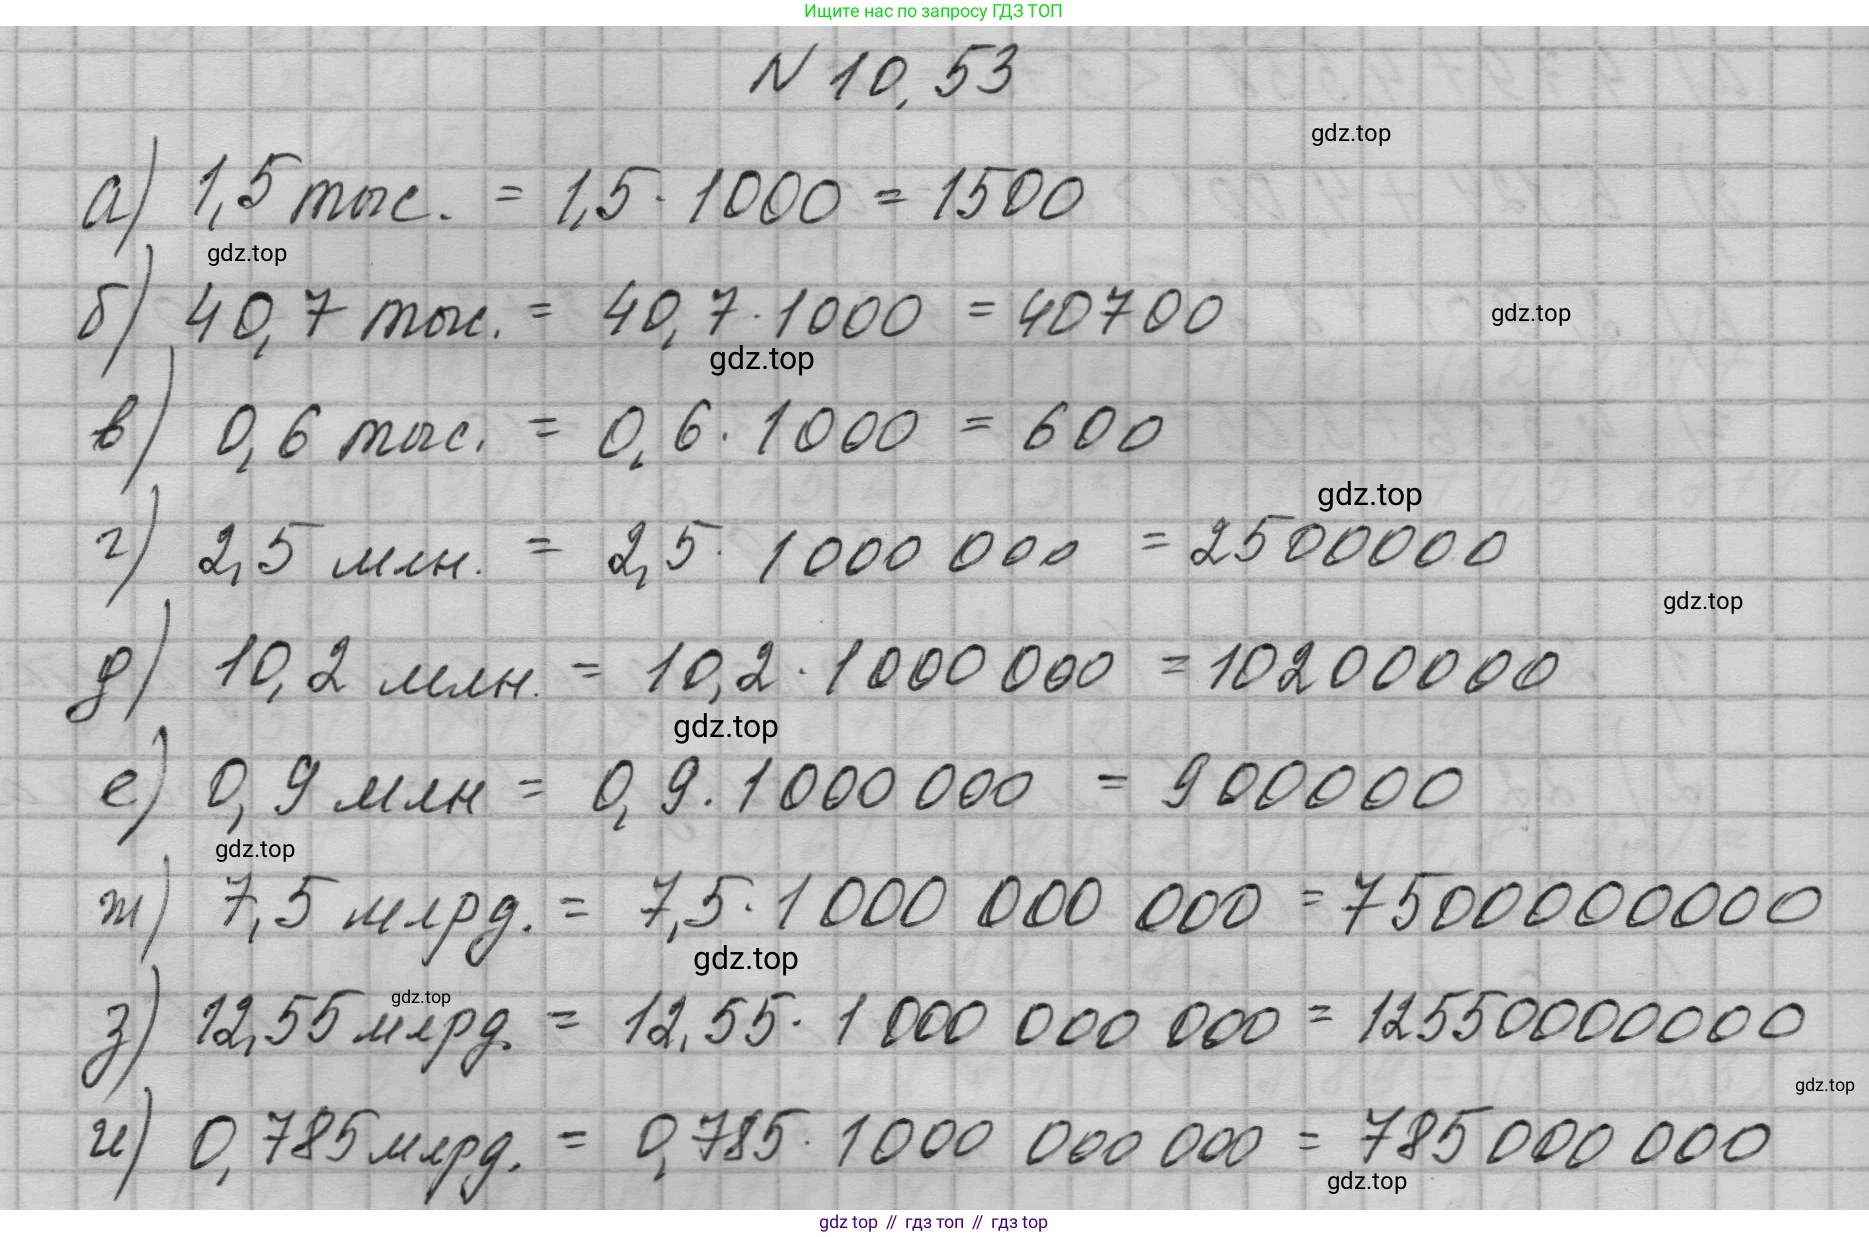 Ищите нас по запросу ГДЗ ТОП
N 10,53
gdz.top
а) 1,5 тыс. = 1,5 · 1000 = 1500
gdz.top
б) 40,7 тыс. = 40,7 · 1000 = 40700
gdz.top
gdz.top
в) 0,6 тыс. = 0,6 · 1000 = 600
gdz.top
г) 2,5 млн. = 2,5 · 1000 000 = 2500000
gdz.top
д) 10,2 млн. = 10,2 · 1000 000 = 10200000
gdz.top
е) 0,9 млн = 0,9 · 1000 000 = 900000
gdz.top
ж) 7,5 млрд. = 7,5 · 1000 000 000 = 7500000000
gdz.top
gdz.top
з) 12,55 млрд. = 12,55 · 1 000 000 000 = 12550000000
gdz.top
и) 0,785 млрд. = 0,785 · 1000 000 000 = 785000 000
gdz.top
gdz top // гдз топ // гдз top